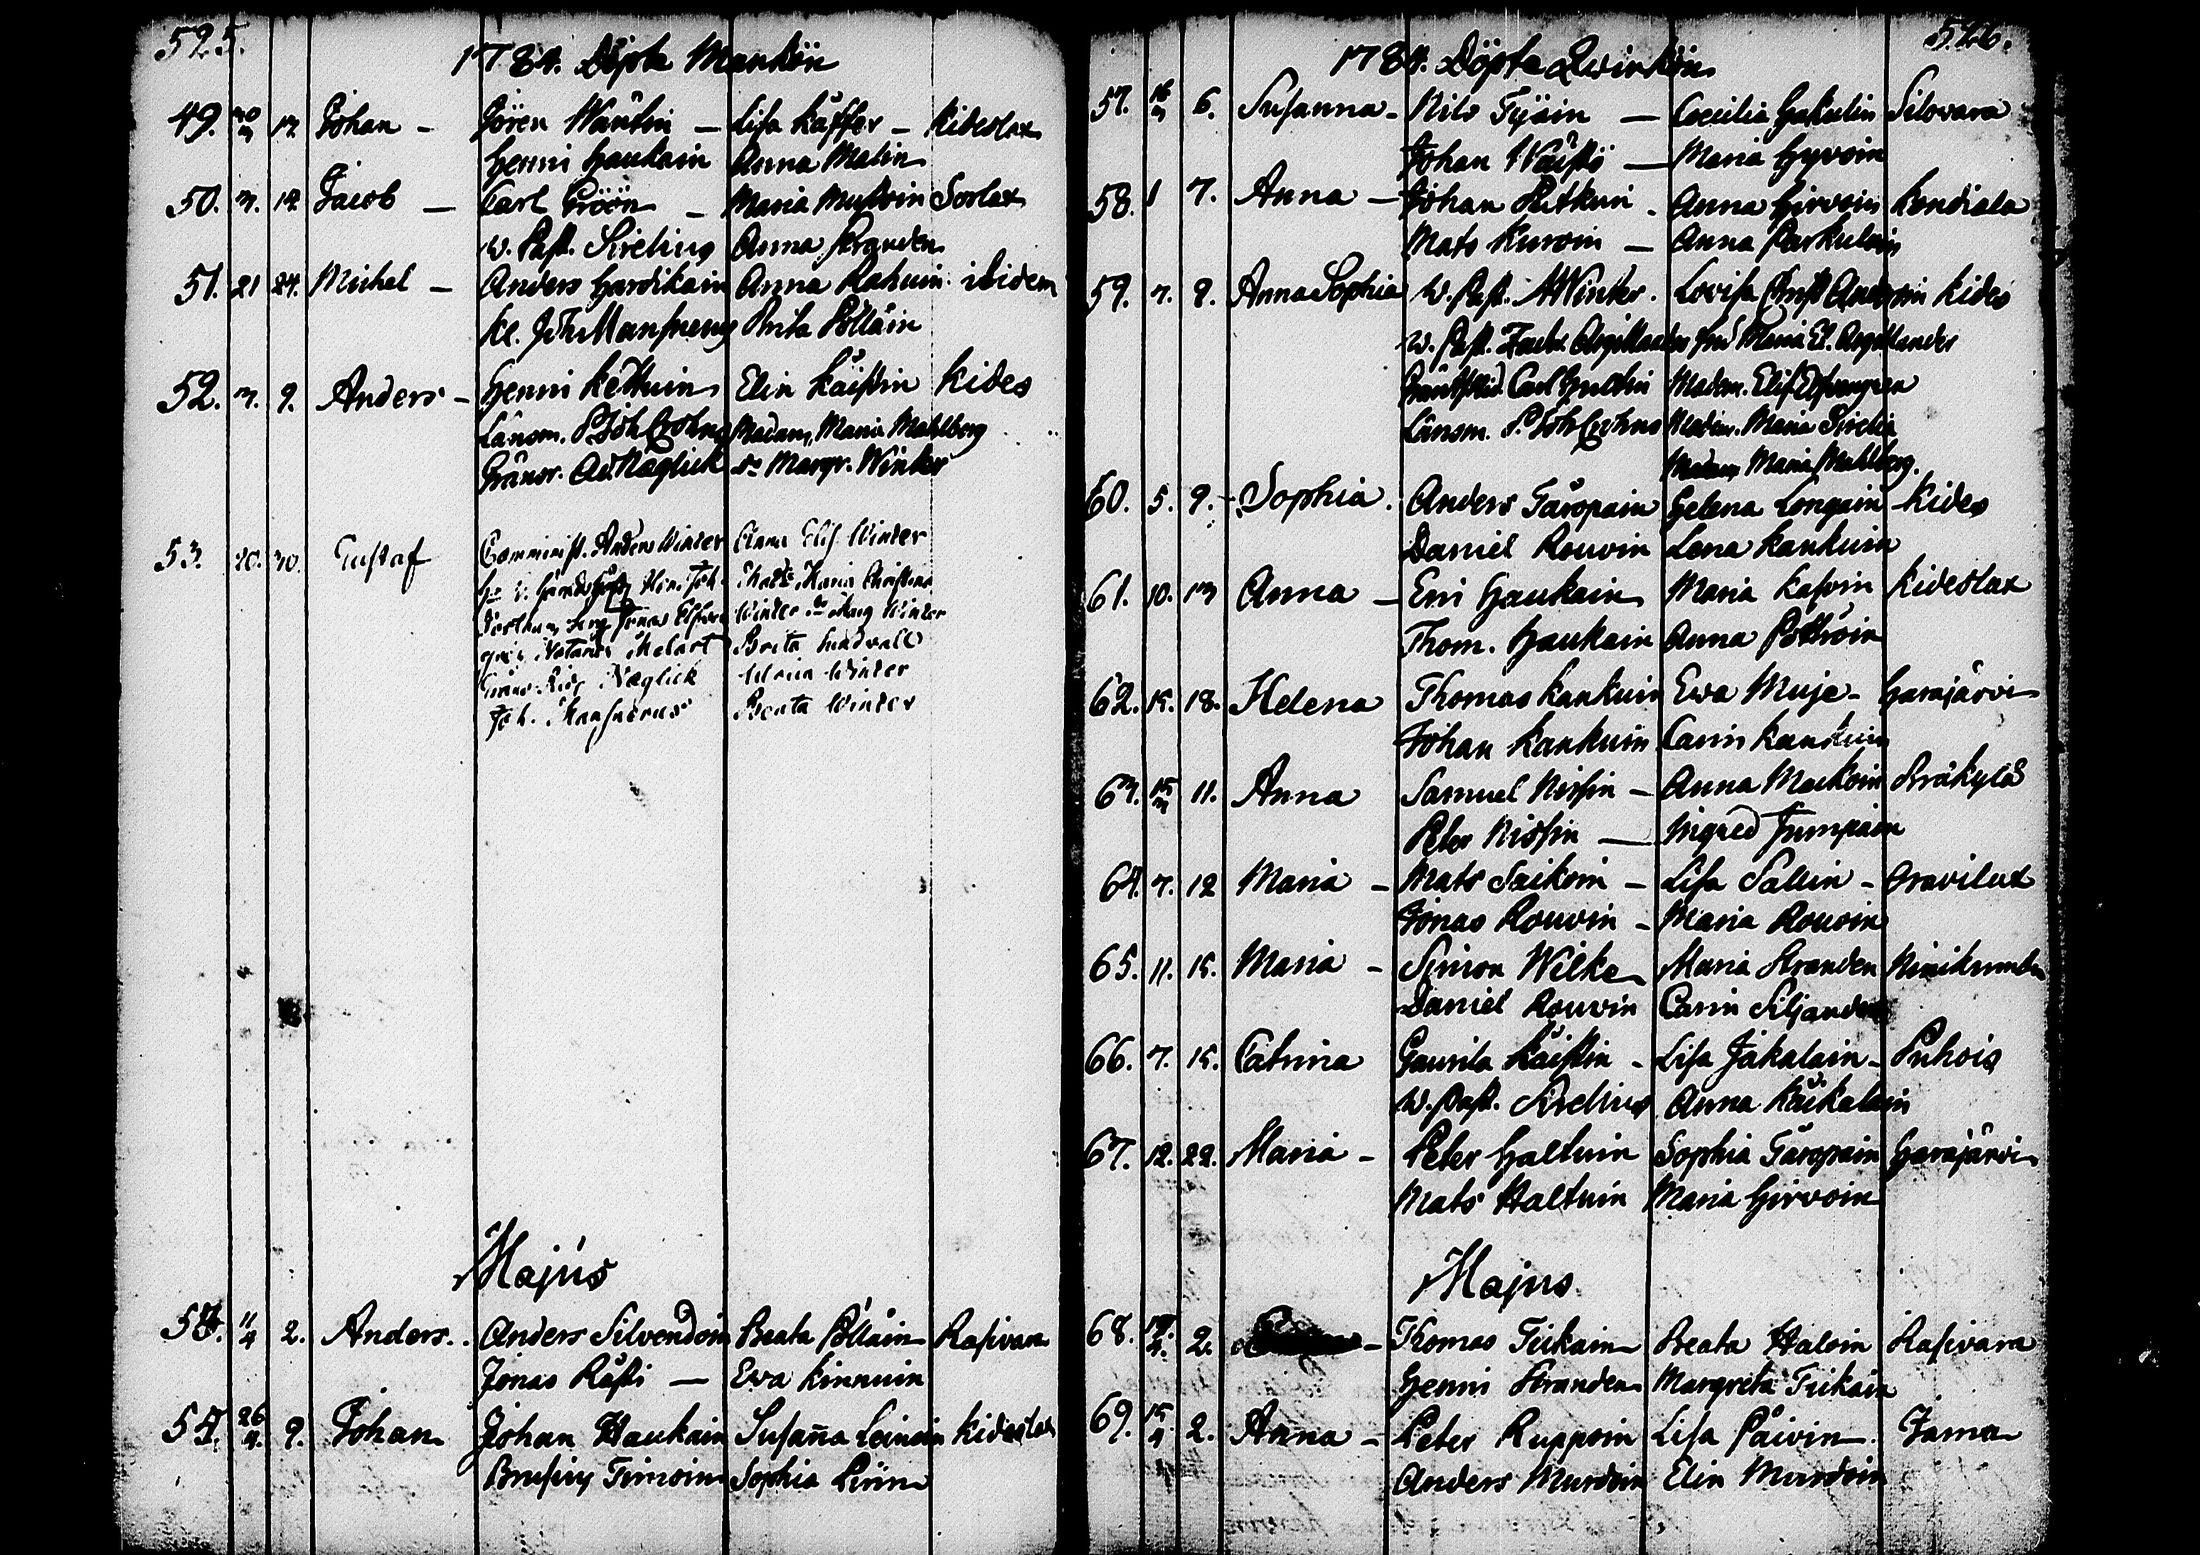 525.
1784. Döpte Mankön
49. 30/3 12. Johan - Jören Wäntin - Lisa Käffer - Kideslax
Henni Haukain Anna Matin
50. 3. 12. Jacob - Carl Gröön - Maria Mustoin Sorlax
w. Past. Sirelius Anna Stranden
51. 21 24. Michel - Anders Hardikain Anna Rahuin ibidem
Kl. Joh. Mansnerus Brita Pölläin
52. 3. 9. Anders - Henni Kettuin Elin Käistin Kides
Länsm. P. Joh. Crohns Madam Maria Mahlberg
Gränsr. Ad. Næglick Margr. Winter
53. 20. 30. Gustaf Comminist. Anders Winter Anna Elis. Winter
Maria Christina
Winter Marg Winter
Notarie Melart Brita
Ridr Næglick Maria Winter
Joh. Mansnerus Beata Winter
Majus
58. 11/4 2. Anders. Anders Silvendoin Beata Pölläin Rasivara
Jonas Rästi - Ewa Kinnuin
26/4. 9. Johan Johan Haukain Susaña Leinoin Kideslax
Brusius Timoin Sophia
526.
1784. Döpte Qwinkön
57. 16/3 6. Susanna - Nils Tijain - Cecilia Hakulin Silovara
Johan Wäistö - Maria Hyvoin
58. 1 7. Anna - Johan Pitkuin - Anna Hirvoin Kondiala
Mats Kuroin - Anna Parkulain
59. 7. 9. Anna Sophia W. Past. Winter. Lovisa Kides
w. Past. Argillander fru Maria El. Argillander
Carl Hultin Madam. Elis Elfvengren
Länsm. P. Joh Crohns Madam. Maria Sirelia
Madam Maria Mahlberg.
60. 5. 9. Sophia. Anders Taropain Helena Longain Kides
Daniel Rouvin Lena Kankuin
61. 10. 13 Anna - Erri Haukain Maria Kasvin Kideslax
Thom. Haukain Anna Pöthöin
62. 15. 18. Helena Thomas Kankuin Ewa Muje - Harajärvi
Johan Kankuin Carin Kankuin
63. 15/3 11. Anna Samuel Nissin - Anna Mackoin Bråkylä
Peter Nissin - Ingred Jumpain
64. 7. 12 Maria - Mats Saikoin - Lisa Sallin - Gravilax
Jonas Rouvin - Maria Rouvin
65. 11. 15. Maria - Simon Wilke Maria Stranden Niinikumbu
Daniel Rouvin Carin Siljander
66. 7. 15. Catrina Gaurila Käistin - Lisa Jakalain - Puhois
w. Past. Sirelius Anna Käikalain
67. 12. 22. Maria - Peter Haltuin Sophia Taropain Harajärvi
Mats Haltuin Maria Hirvoin
Majus
68. 2. Thomas Tiikain Beata Haloin Rasivara
Henni Stranden Margreta Tiikain
69. 15/4 2. Anna - Peter Ruppoin Lisa Päivin Jama
Anders Murdoin Elin Murdoin